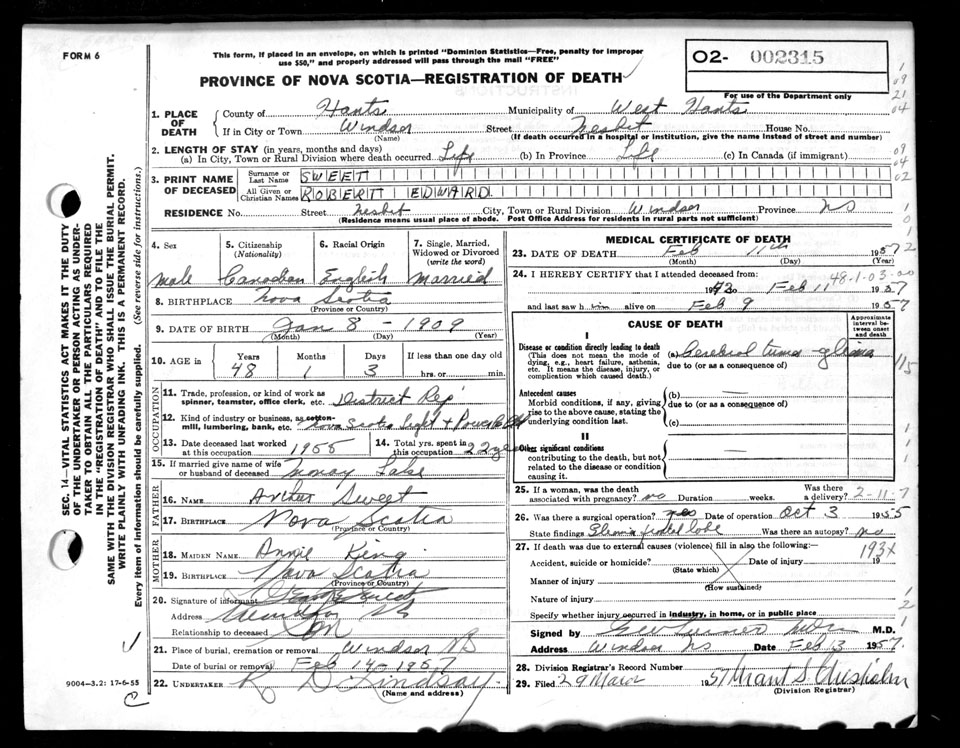 FORM 6
This form, if placed in an envelope, on which is printed "Dominion Statistics—Free, penalty for improper
use $50," and properly addressed will pass through the mail "FREE"
O2- 002315
For use of the Department only
PROVINCE OF NOVA SCOTIA—REGISTRATION OF DEATH
1. PLACE OF DEATH
County of Hants Municipality of West Hants
If in City or Town Windsor Street Nesbit House No.
(Name) (If death occurred in a hospital or institution, give the name instead of street and number)
2. LENGTH OF STAY (in years, months and days)
(a) In City, Town or Rural Division where death occurred Life (b) In Province Life (c) In Canada (if immigrant)
3. PRINT NAME OF DECEASED
Surname or Last Name SWEET
All Given or Christian Names ROBERT EDWARD
RESIDENCE No. Street Nesbit City, Town or Rural Division Windsor Province NS
(Residence means usual place of abode. Post Office Address for residents in rural parts not sufficient)
4. Sex 5. Citizenship (Nationality) 6. Racial Origin 7. Single, Married, Widowed or Divorced (write the word)
male Canadian English Married
8. BIRTHPLACE Nova Scotia
(Province or Country)
9. DATE OF BIRTH Jan 8 - 1909
(Month) (Day) (Year)
10. AGE in Years Months Days If less than one day old
48 1 3 hrs. or min.
OCCUPATION
11. Trade, profession, or kind of work as
spinner, teamster, office clerk, etc. District Rep
12. Kind of industry or business, as cotton-
mill, lumbering, bank, etc. Nova Scotia Light & Power
13. Date deceased last worked
at this occupation 1955
14. Total yrs. spent in
this occupation 22
15. If married give name of wife
or husband of deceased
FATHER
16. NAME Arthur Sweet
17. BIRTHPLACE Nova Scotia
(Province or Country)
MOTHER
18. MAIDEN NAME Annie King
19. BIRTHPLACE Nova Scotia
(Province or Country)
20. Signature of informant
Address Windsor NS
Relationship to deceased Son
21. Place of burial, cremation or removal Windsor NS
Date of burial or removal Feb 14 - 1957
22. UNDERTAKER R D Lindsay
(Name and address)
MEDICAL CERTIFICATE OF DEATH
23. DATE OF DEATH Feb 11th 1957
(Month) (Day) (Year)
24. I HEREBY CERTIFY that I attended deceased from:
48-1-03-20
to Feb 11 1957
and last saw him alive on Feb 9 1957
CAUSE OF DEATH
Approximate interval between onset and death
I
Disease or condition directly leading to death
(This does not mean the mode of dying, e.g., heart failure, asthenia, etc. It means the disease, injury, or complication which caused death.)
(a) Cerebral tumor - glioma
due to (or as a consequence of)
Antecedent causes
Morbid conditions, if any, giving rise to the above cause, stating the underlying condition last.
(b)
due to (or as a consequence of)
(c)
II
Other significant conditions
contributing to the death, but not related to the disease or condition causing it.
25. If a woman, was the death
associated with pregnancy? no Duration weeks. Was there a delivery? 2-11-7
26. Was there a surgical operation? yes Date of operation Oct 3 1955
State findings Was there an autopsy? no
27. If death was due to external causes (violence) fill in also the following:—
193x
Accident, suicide or homicide? Date of injury 19
(State which)
Manner of injury
(How sustained)
Nature of injury
Specify whether injury occurred in industry, in home, or in public place
Signed by M.D.
Address Windsor NS Date Feb 13 1957
28. Division Registrar's Record Number
29. Filed 29 1957 Grant S Chisholm
(Division Registrar)
SEC. 14—VITAL STATISTICS ACT MAKES IT THE DUTY
OF THE UNDERTAKER OR PERSON ACTING AS UNDER-
TAKER TO OBTAIN ALL THE PARTICULARS REQUIRED
IN THE "REGISTRATION OF DEATH" AND TO FILE THE
SAME WITH THE DIVISION REGISTRAR WHO SHALL ISSUE THE BURIAL PERMIT.
WRITE PLAINLY WITH UNFADING INK. THIS IS A PERMANENT RECORD.
Every item of information should be carefully supplied. (See reverse side for instructions.)
9004-3.2: 17-6-55